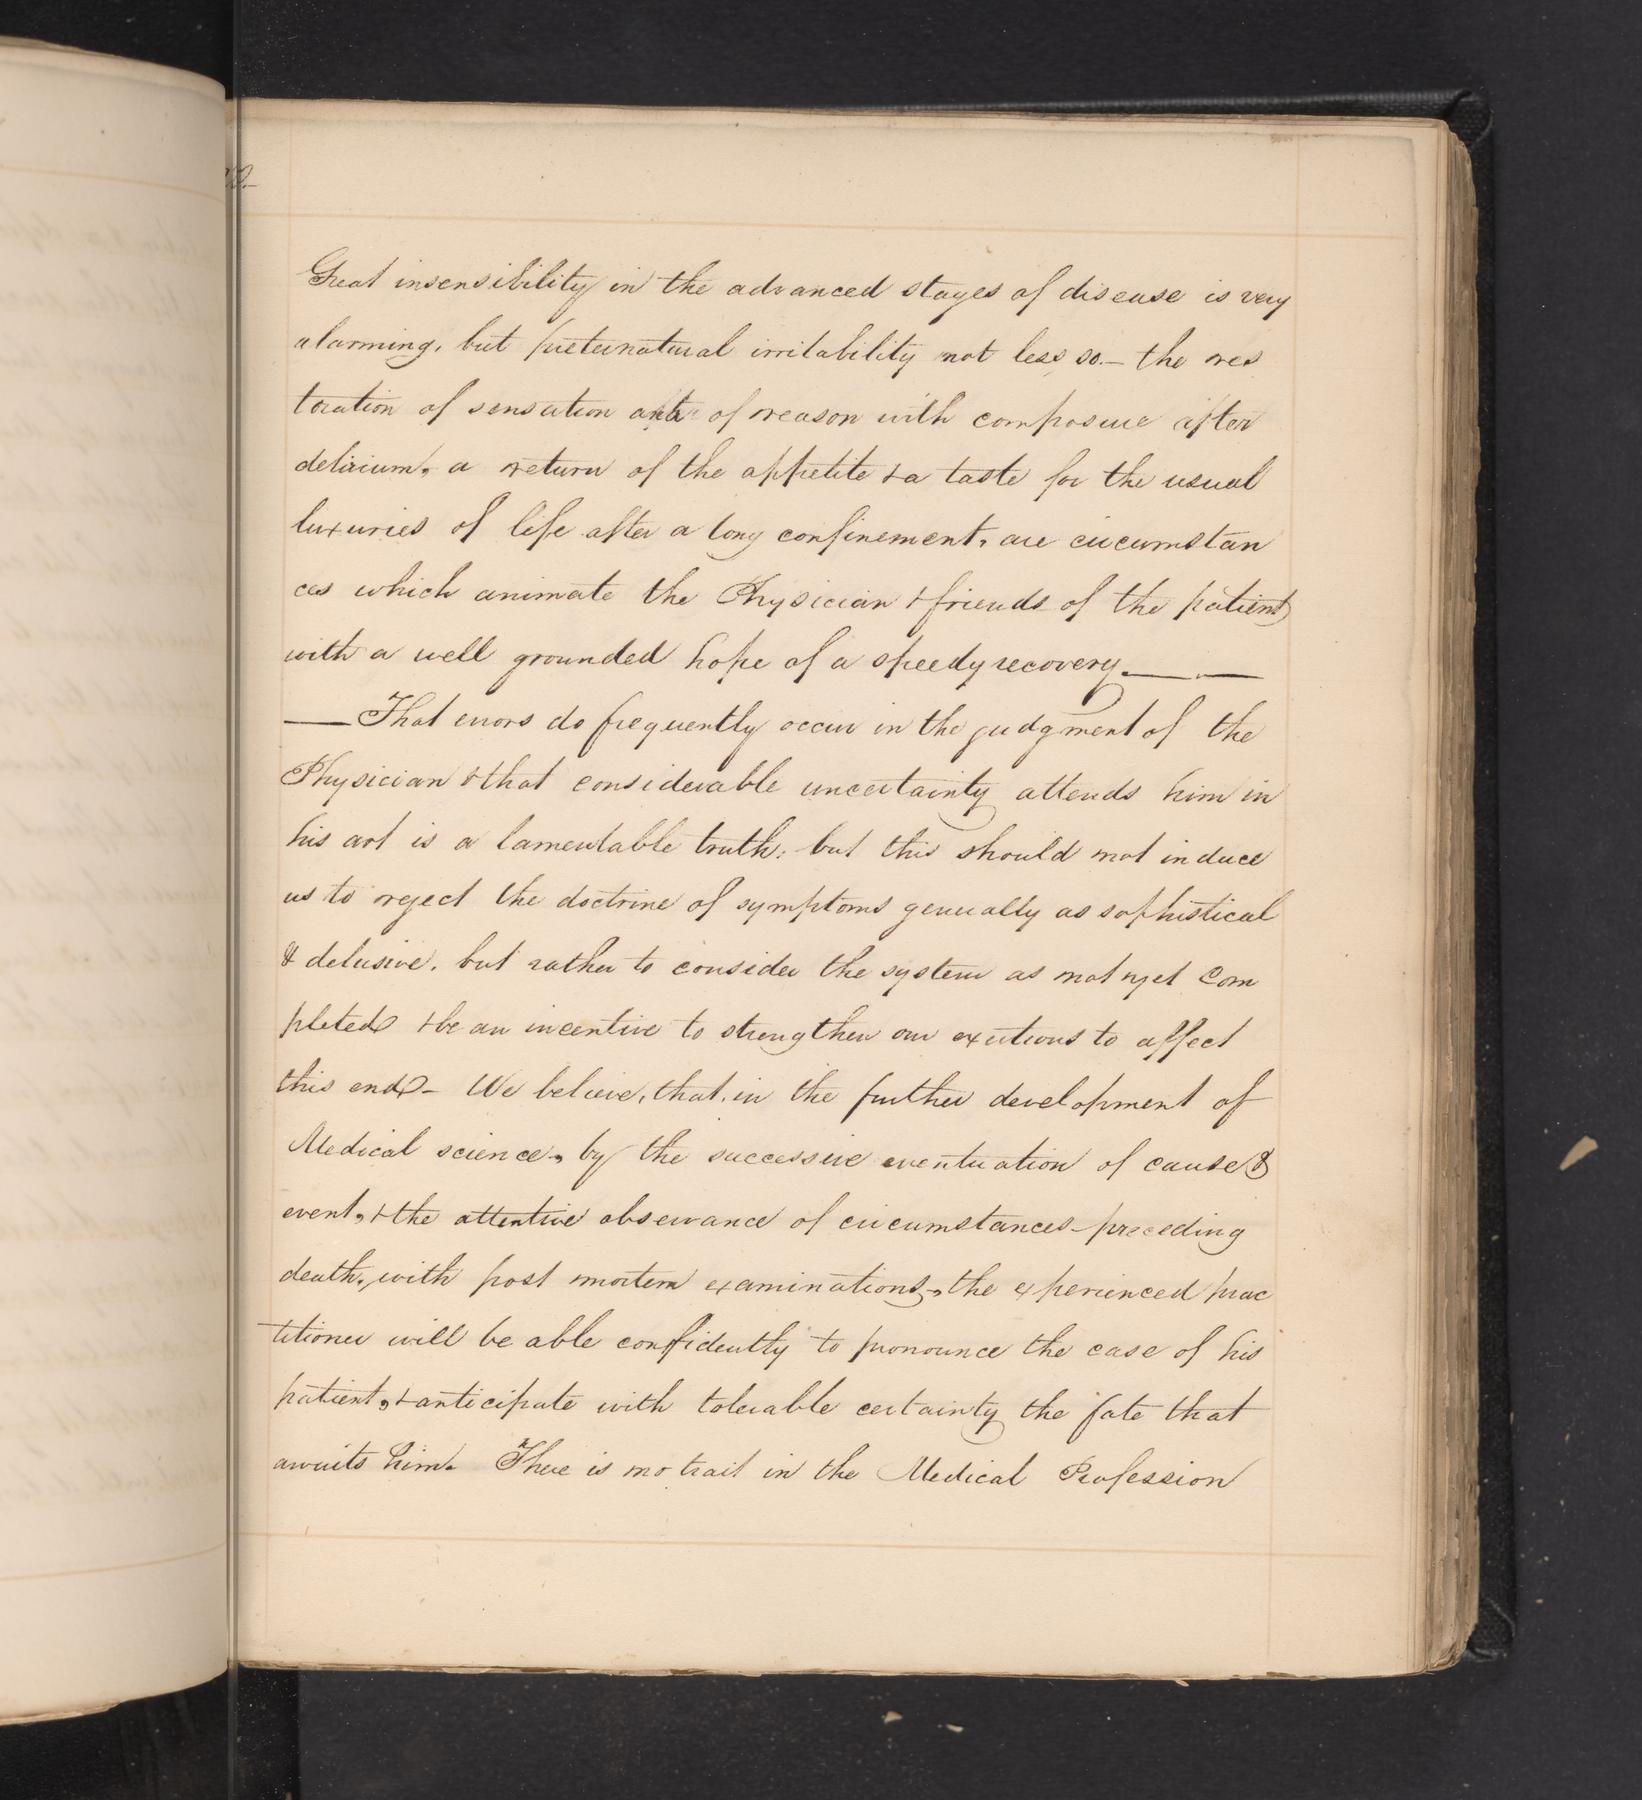 Great insensibility in the advanced stages of disease is very
alarming, but preternatural irritability not less so.— the res
toration of sensation of reason with composure after
delirium, a return of the appetite & a taste for the usual
luxuries of life after a long confinement, are circumstan
ces which animate the Physician & friends of the patient
with a well grounded hope of a speedy recovery.— —
— That errors do frequently occur in the judgment of the
Physician & that considerable uncertainty attends him in
his art is a lamentable truth; but this should not induce
us to reject the doctrine of symptoms generally as sophistical
& delusive, but rather to consider the system as not yet com
pleted & be an incentive to strengthen our exertions to affect
this end— We believe, that, in the further development of
Medical science, by the successive eventuation of cause &
event, & the attentive observance of circumstances preceding
death, with post mortem examinations, the experienced prac
titioner will be able confidently to pronounce the case of his
patient, & anticipate with tolerable certainty the fate that
awaits him. There is no trait in the Medical Profession